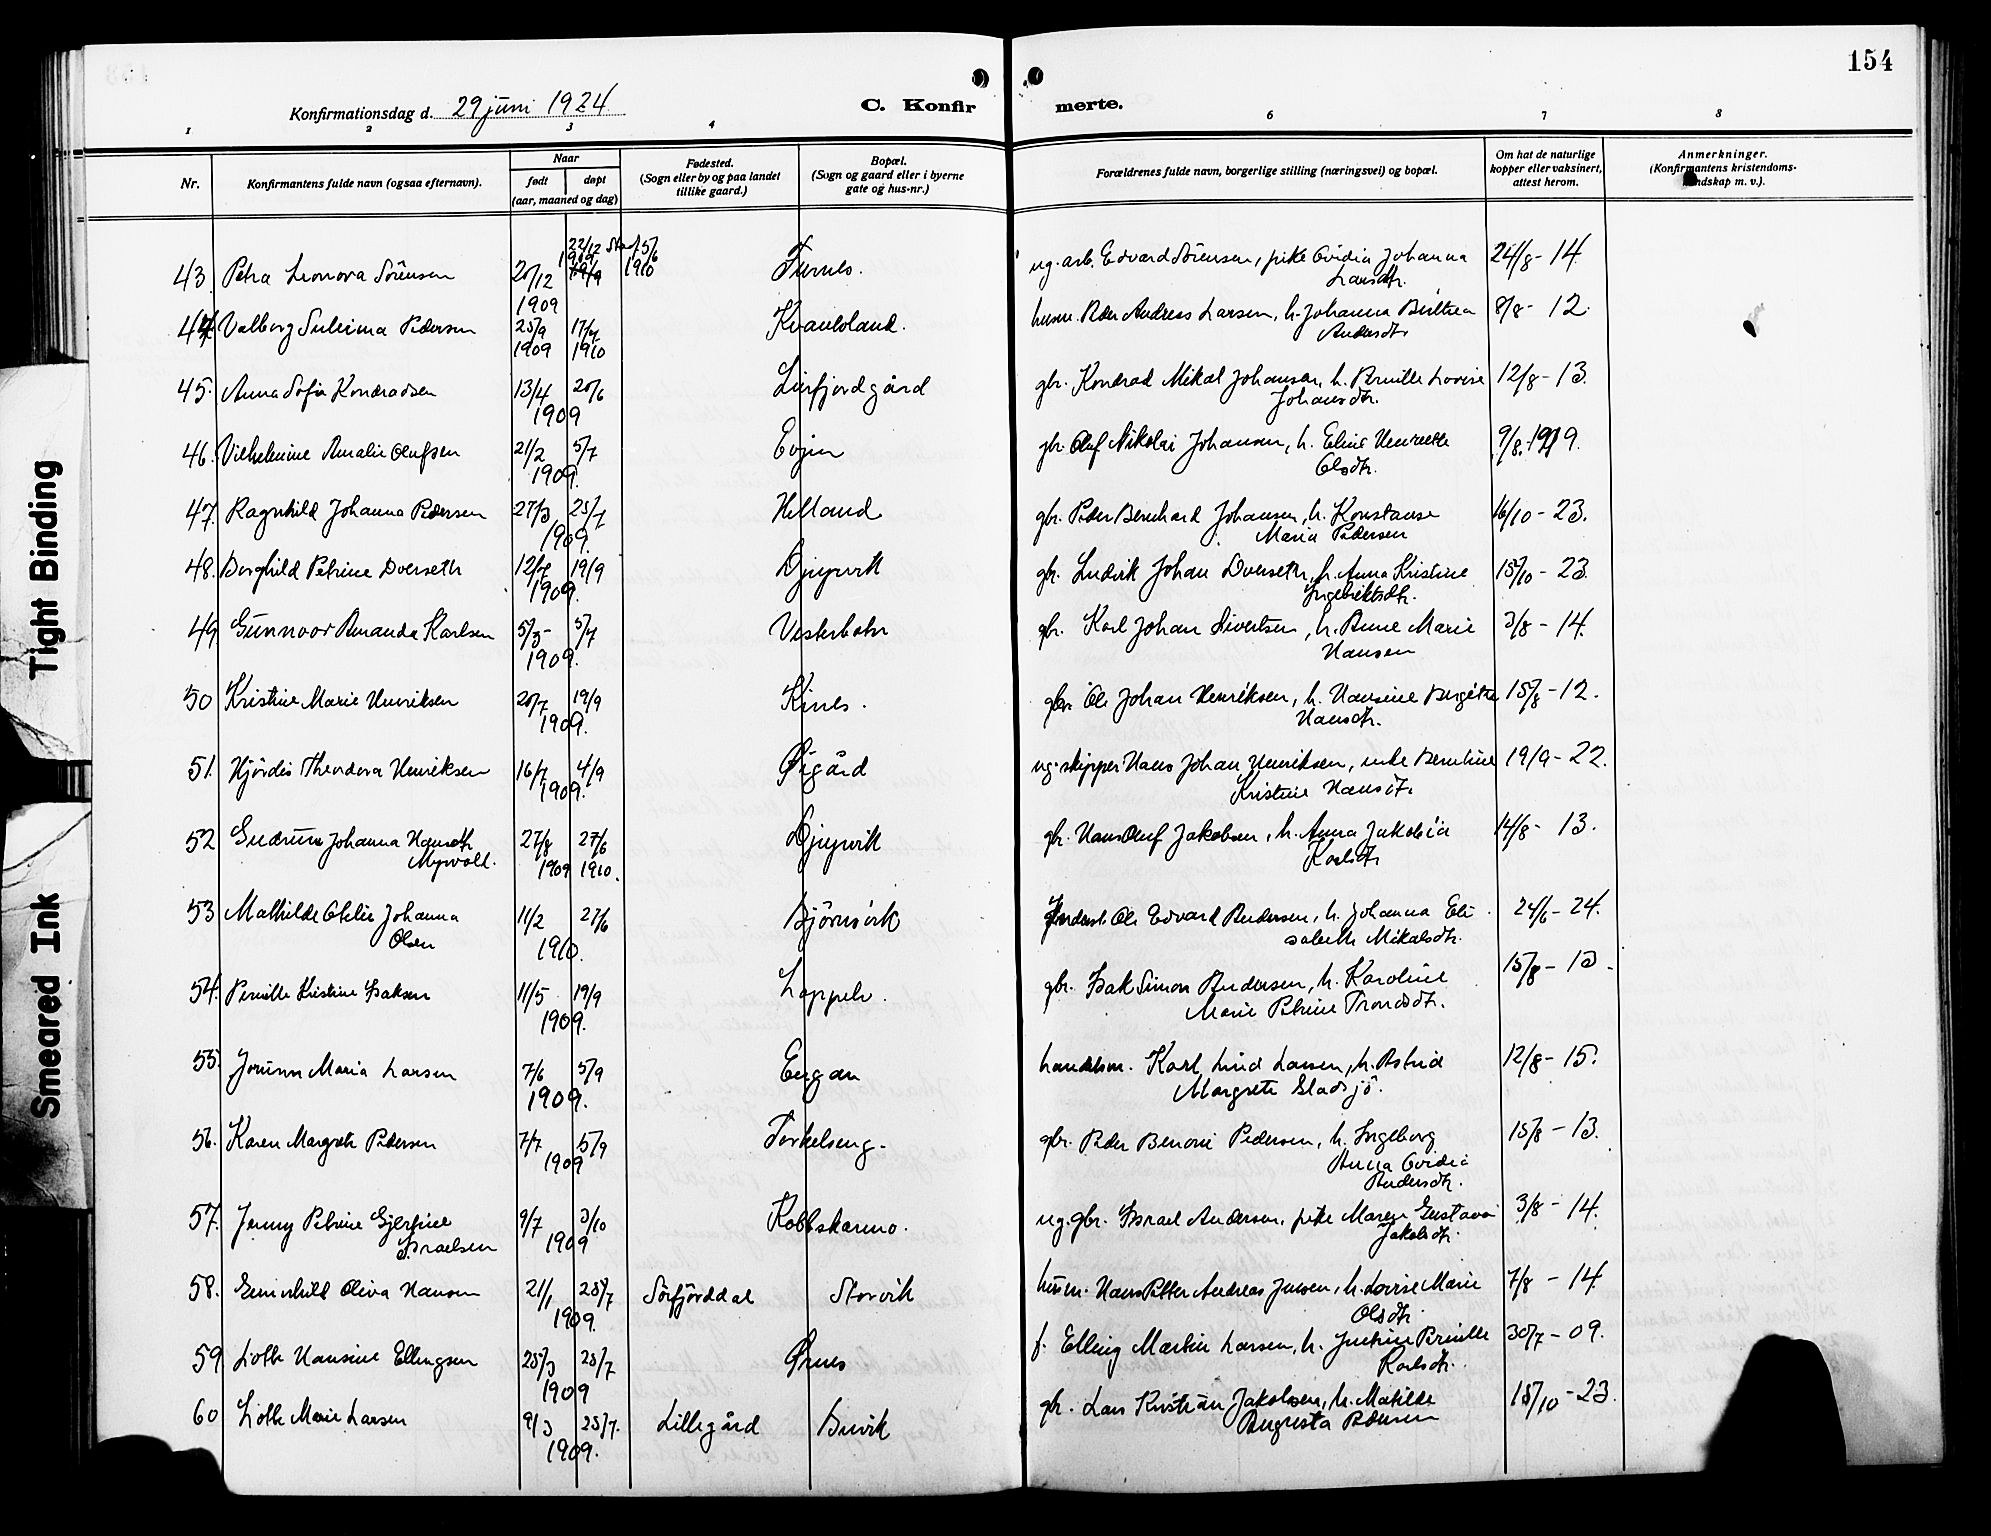 154
Konfirmationsdag d. 29 juni 1924
C. Konfir merte.
1 2 3 4 6 7 8
Nr.
Konfirmantens fulde navn (ogsaa efternavn).
Naar
født døpt
(aar, maaned og dag)
Fødested.
(Sogn eller by og paa landet
tillike gaard.)
Bopæl.
(Sogn og gaard eller i byerne
gate og hus-nr.)
Forældrenes fulde navn, borgerlige stilling (næringsvei) og bopæl.
Om hat de naturlige
kopper eller vaksinert,
attest herom.
Anmerkninger.
(Konfirmantens kristendoms-
kundskap m. v.).
43 Petra Leonora Sörensen 20/12 1909 22/12 1909 Stad. 5/6 1910 Furnes. ug. arb. Edvard Sörensen, pike Ovidia Johanna 24/8 - 14.
Larsdtr.
44 Valborg Pedersen 25/9 1909 17/4 1910 Kvanloland. husm. Peder Andreas Larsen, h. Johanna Birthea 8/8 - 12.
Andersdtr.
45. Anna Sofie Konradsen 13/4 20/6 1909 Leirfjordgård gbr. Konrad Mikal Johansen, h. Pernille Lovise 12/8 - 13.
Johansdtr.
46. Vilhelmine Amalie Olufsen 21/2 5/7 1909. Evjen gbr. Oluf Nikolai Johansen, h. Eline Henrette 9/8. 1919.
Olsdtr.
47. Ragnhild Johanna Pedersen 27/3 25/7 1909. Helland gbr. Peder Bernhard Johansen, h. Konstanse 16/10 - 23.
Maria Pedersen
48. Borghild Petrine Dverseth 12/7 19/9 1909. Djupvik gbr. Ludvik Johan Dverseth, h. Anna Kristine 15/10 - 23.
Ingebriktsdtr.
49 Gunnvor Amanda Karlsen 5/3 - 5/7 1909. Vesterbotn gbr. Karl Johan Sivertsen, h. Anne Marie 3/8 - 14.
Hansen
50 Kristine Marie Henriksen 20/7 19/9 1909. Kines. gbr. Ole Johan Henriksen, h. Hansine Birgitte 15/8 - 12.
Hansdtr.
51. Hjördis Theodora Henriksen 16/7 4/9 1909. Øigård ug. skipper Hans Johan Henriksen, enke Berntine 19/9 - 22.
Kristine Hansdtr.
52 Gudrun Johanna Hansdtr. 27/8 1909 27/6 1910. Djupvik gbr. Hans Oluf Jakobsen, h. Anna Jakobia 14/8 - 13.
Myrvoll. Karlsdtr.
53 Mathilde Otelie Johanna 11/2 27/6 1910. Björnsvik Ole Edvard Andersen, h. Johanna Eli 24/6 - 24.
Olsen sabeth Mikalsdtr.
54. Pernille Kristine Isaksen 11/5 19/9 1909. Loppelv. gbr. Isak Simon Andersen, h. Karoline 15/8 - 13.
Marie Petrine Trondsdtr.
55. Jorunn Maria Larsen 7/6 5/9 1909. Engan handelsm. Karl Lind Larsen, h. Astrid 12/8 - 15.
Margrete Gladsjö.
56. Karen Margrete Pedersen 7/7 5/9 1909 Torkelseng. gbr. Peder Benoni Pedersen, h. Ingeborg 15/8 - 13.
Anna Ovidia
Andersdtr.
57. Jenny Petrine Gjertine 9/7 3/10 1909 Kobbskarmo. ug. gbr. Israel Andersen, pike Maren Gustava 3/8 - 14.
Israelsen Jakobsdtr.
58. Gunnhild Oliva Hansen 21/1 25/7 1909. Sörfjorddal Storvik husm. Hans Petter Andreas Jensen, h. Lovise Marie 7/8 - 14
Olsdtr.
59 Lotte Hansine Ellingsen 25/3 25/7 1909 Ørnes f. Elling Martin Larsen, h. Justine Pernille 30/7 - 09.
Karlsdtr.
60 Lotte Marie Larsen 9/3 25/7. 1909. Lillegård Buvik gbr. Lars Kristian Jakobsen, h. Matilde 15/10 - 23.
Augusta Pedersen
Tight Binding
Smeared Ink